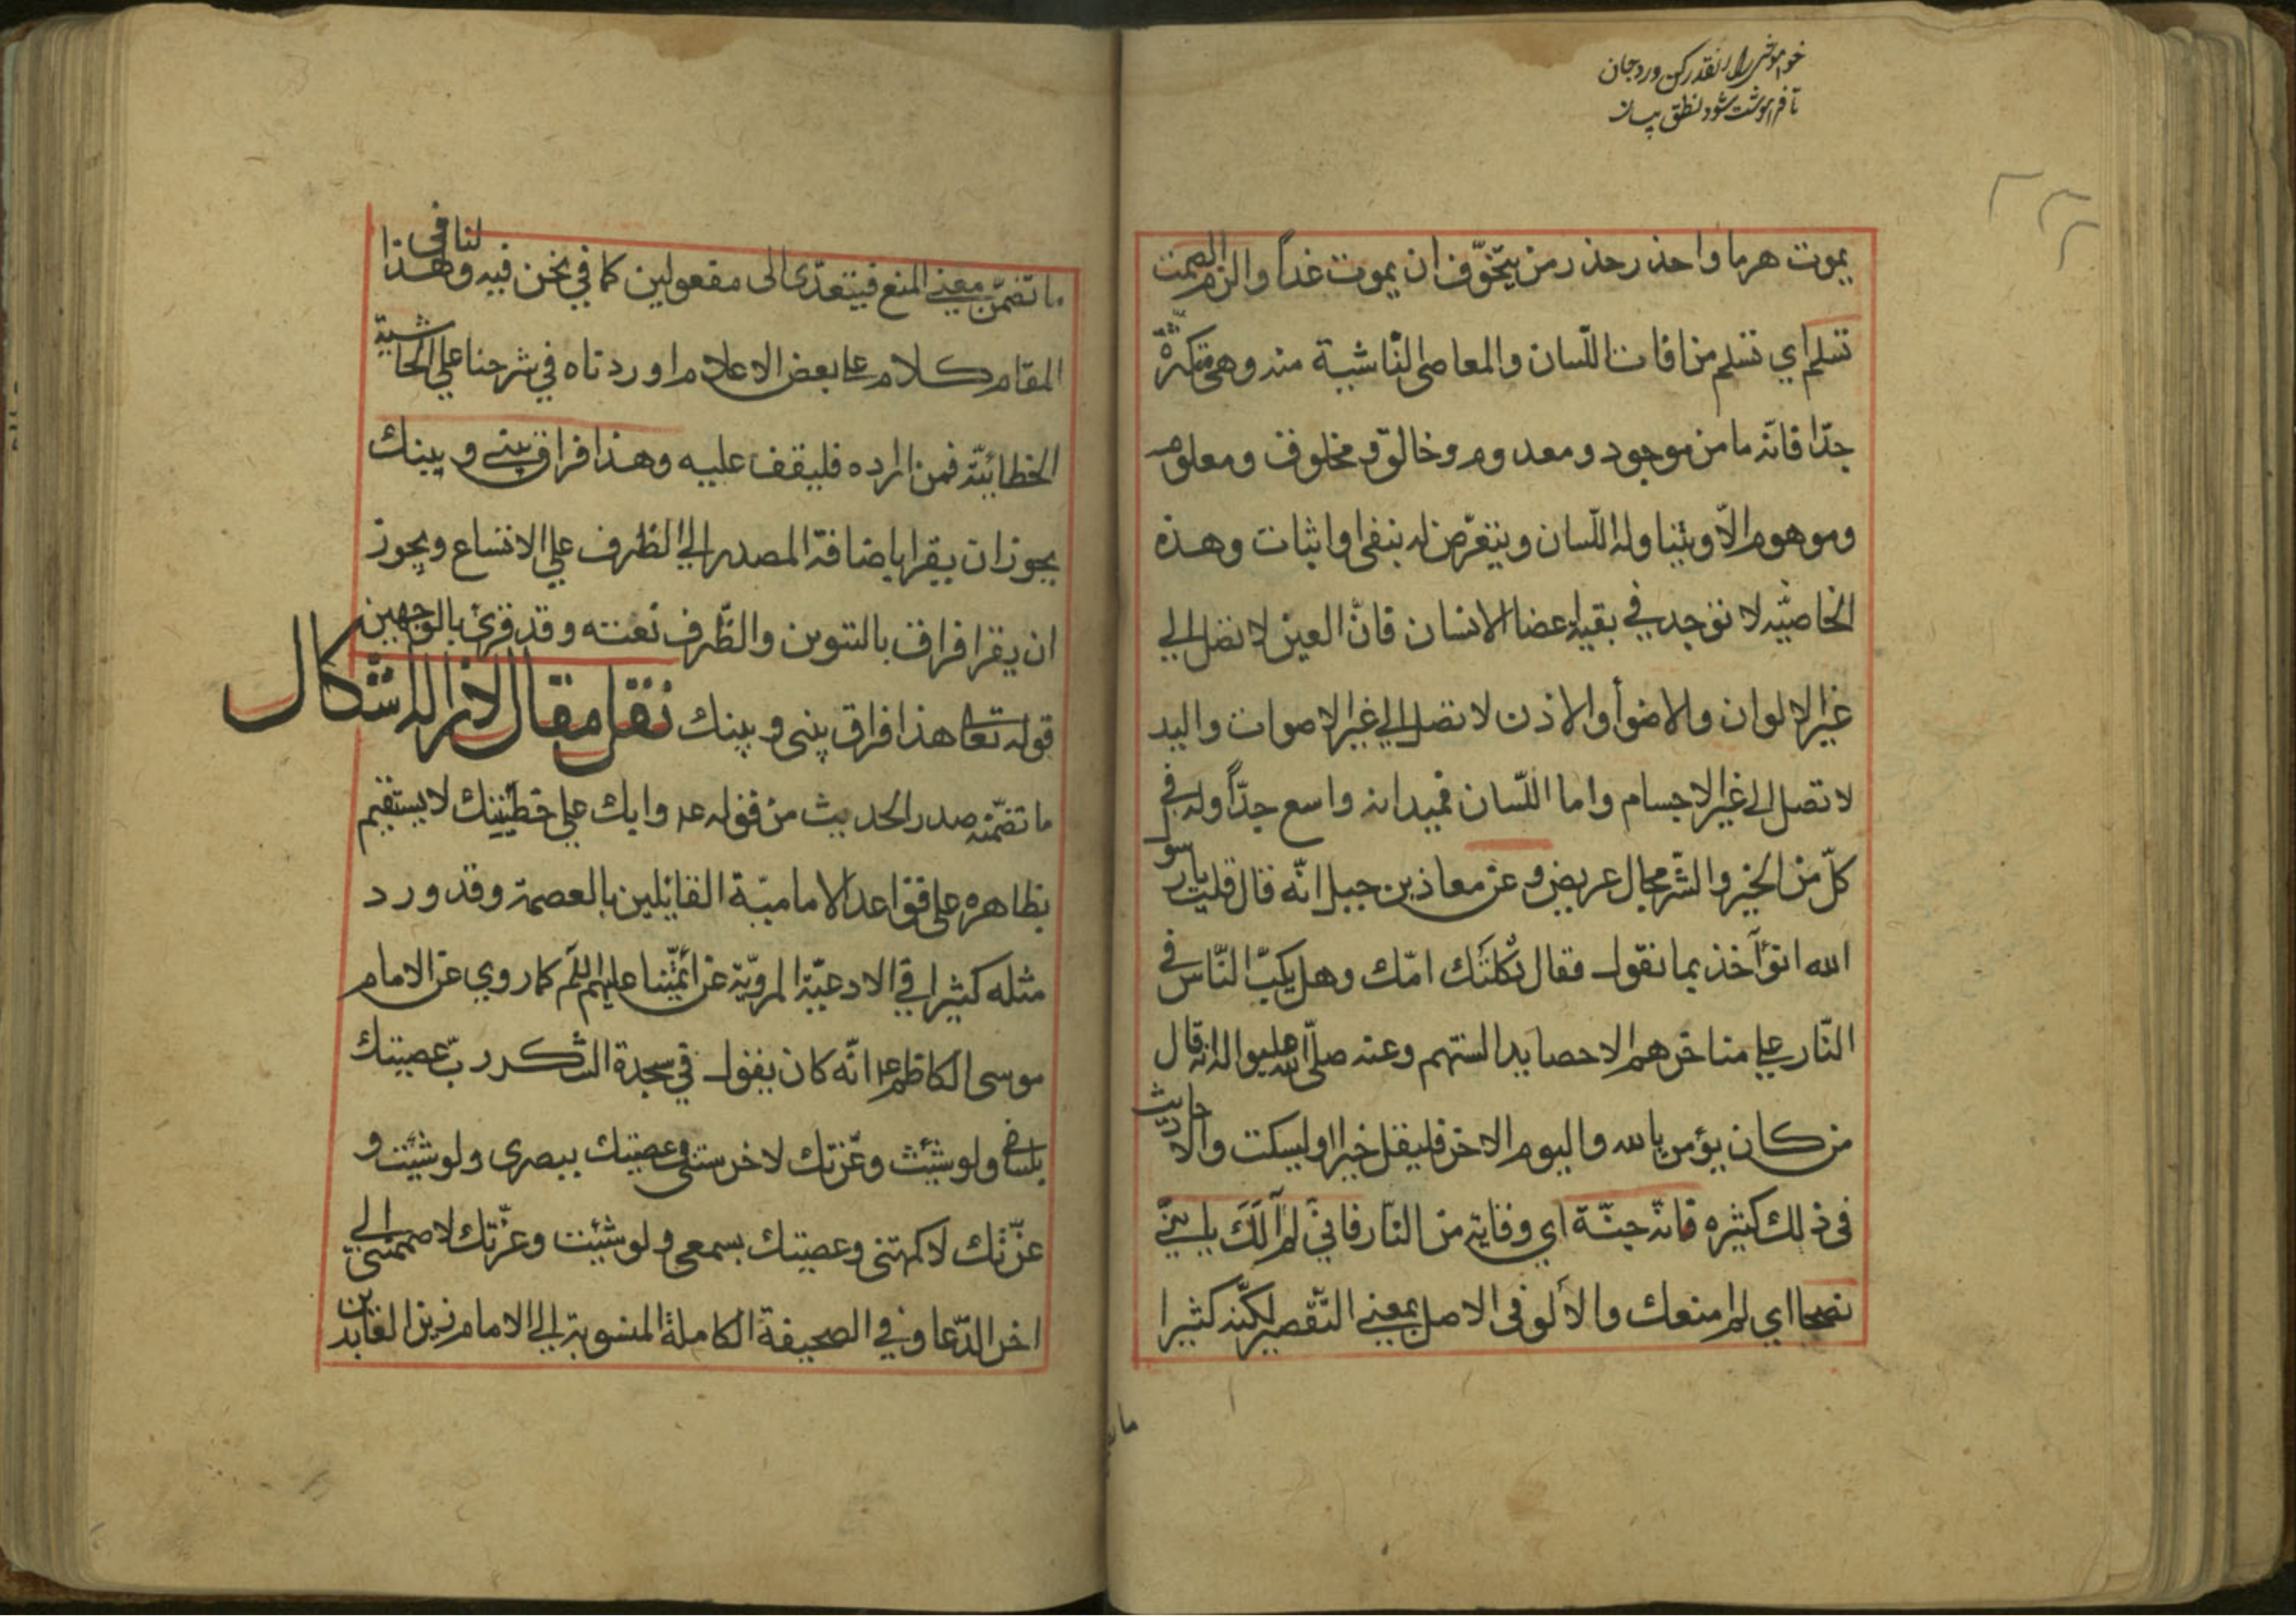 خواموشی را انقدر کن ورد جان
تا فراموشت شود نطق
يموت هرما واحذر حذر من يتخوّف ان يموت غداً والزم الصمت
تسلم اي تسلم من افات اللّسان والمعاصى النّاشية منه وهى متكثّرة
جدّا فانّه ما من موجود ومعدوم وخالق ومخلوق ومعلوم
وموهوم الّا ويتناوله اللّسان ويتعرّض له بنفى او اثبات وهذه
الخاصّيّه لا توجد في بقية اعضا الانسان فانّ العين لا تصل الي
غير الالوان والاضوأ والاذن لا تصل الي غير الاصوات واليد
لا تصل الي غير الاجسام واما اللّسان فميدانه واسع جدّاً وله في
كلّ من الخير والشّر مجال عريض و عن معاذ بن جبل انّه قال قلت يا رسو
الله انؤآخذ بما نقول فقال ثكلتك امّك وهل يكبّ النّاس في
النّار علي مناخرهم الا حصايد السنتهم وعنه صلّى الله عليه واله انه قال
من كان يؤمن بالله واليوم الاخر فليقل خيرا او ليسكت والاحاديث
فى ذلك كثيره فانّه جنّة اي وقاية من النّار فانيّ لم آلك يا بنيّ
نصحا اي لم امنعك والألو فى الاصل بمعني التّقصير لكنّه كثيرا
ما
ما تضمّن معني المنع فيتعدّى الى مفعولين كما في نحن فيه وهذا لنا فى
المقام كلام علي بعض الاعلام اوردناه في شرحنا علي الحاشية
الخطائيّة فمن اراده فليقف عليه وهذا فراق بينى وبينك
يجوز ان يقرا باضافة المصدر الي الظرف علي الاتساع ويجوز
ان يقرا فراق بالتنوين والظّرف نعته وقد قرئ بالوجهين
قوله تعا هذا فراق بينى وبينك نقل مقال لازاله اشكال
ما تضمّنه صدر الحديث من قوله عه وابك علي خطيئتك لا يستقيم
بظاهره على قواعد الاماميّة القايلين بالعصمة وقد ورد
مثله كثيرا في الادعيّة المرويّة عن ائمّتنا عليهم السلم كما روي عن الامام
موسى الكاظم عه انّه كان يقول في سجدة الشكر ربّ عصيتك
بلسانى ولو شئت وعزّتك لاخرستنى وعصيتك ببصرى ولو شئت و
عزّتك لاكمهتنى وعصيتك بسمعى ولو شئت وعزّتك لاصممتنى الي
اخر الدّعا وفي الصحيفة الكاملة المنسوبة الي الامام زين العابدين